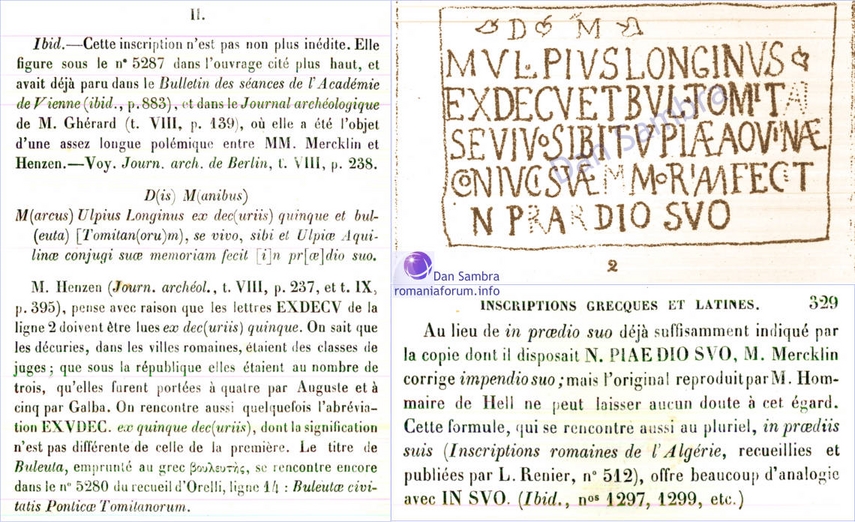 II.
Ibid.—Cette inscription n'est pas non plus inédite. Elle
figure sous le n° 5287 dans l'ouvrage cité plus haut, et
avait déjà paru dans le Bulletin des séances de l'Académie
de Vienne (ibid., p. 883), et dans le Journal archéologique
de M. Ghérard (t. VIII, p. 139), où elle a été l'objet
d'une assez longue polémique entre MM. Mercklin et
Henzen.—Voy. Journ. arch. de Berlin, t. VIII, p. 238.
D(is) M(anibus)
M(arcus) Ulpius Longinus ex dec(uriis) quinque et bul-
(euta) [Tomitan(oru)m), se vivo, sibi et Ulpiæ Aqui-
linæ conjugi suæ memoriam fecit [i]n pr[æ]dio suo.
M. Henzen (Journ. archéol., t. VIII, p. 237, et t. IX,
p. 395), pense avec raison que les lettres EXDECV de la
ligne 2 doivent être lues ex dec(uriis) quinque. On sait que
les décuries, dans les villes romaines, étaient des classes de
juges; que sous la république elles étaient au nombre de
trois, qu'elles furent portées à quatre par Auguste et à
cinq par Galba. On rencontre aussi quelquefois l'abrévia-
tion EXVDEC. ex quinque dec(uriis), dont la signification
n'est pas différente de celle de la première. Le titre de
Buleuta, emprunté au grec βουλευτής, se rencontre encore
dans le n° 5280 du recueil d'Orelli, ligne 14 : Buleutæ civi-
tatis Ponticæ Tomitanorum.
D M
MVLPIVSLONGINVS
EXDECVETBVLTOMITA
SEVIVOSIBITVPIÆAOVINÆ
CONIVGISVÆMMORIAMFECT
N PRAR DIO SVO
Dan Sambra
2
Dan Sambra
romaniaforum.info
INSCRIPTIONS GRECQUES ET LATINES. 329
Au lieu de in prædio suo déjà suffisamment indiqué par
la copie dont il disposait N. PIAE DIO SVO, M. Mercklin
corrige impendio suo; mais l'original reproduit par M. Hom-
maire de Hell ne peut laisser aucun doute à cet égard.
Cette formule, qui se rencontre aussi au pluriel, in prædiis
suis (Inscriptions romaines de l'Algérie, recueillies et
publiées par L. Renier, n° 512), offre beaucoup d'analogie
avec IN SVO. (Ibid., nos 1297, 1299, etc.)